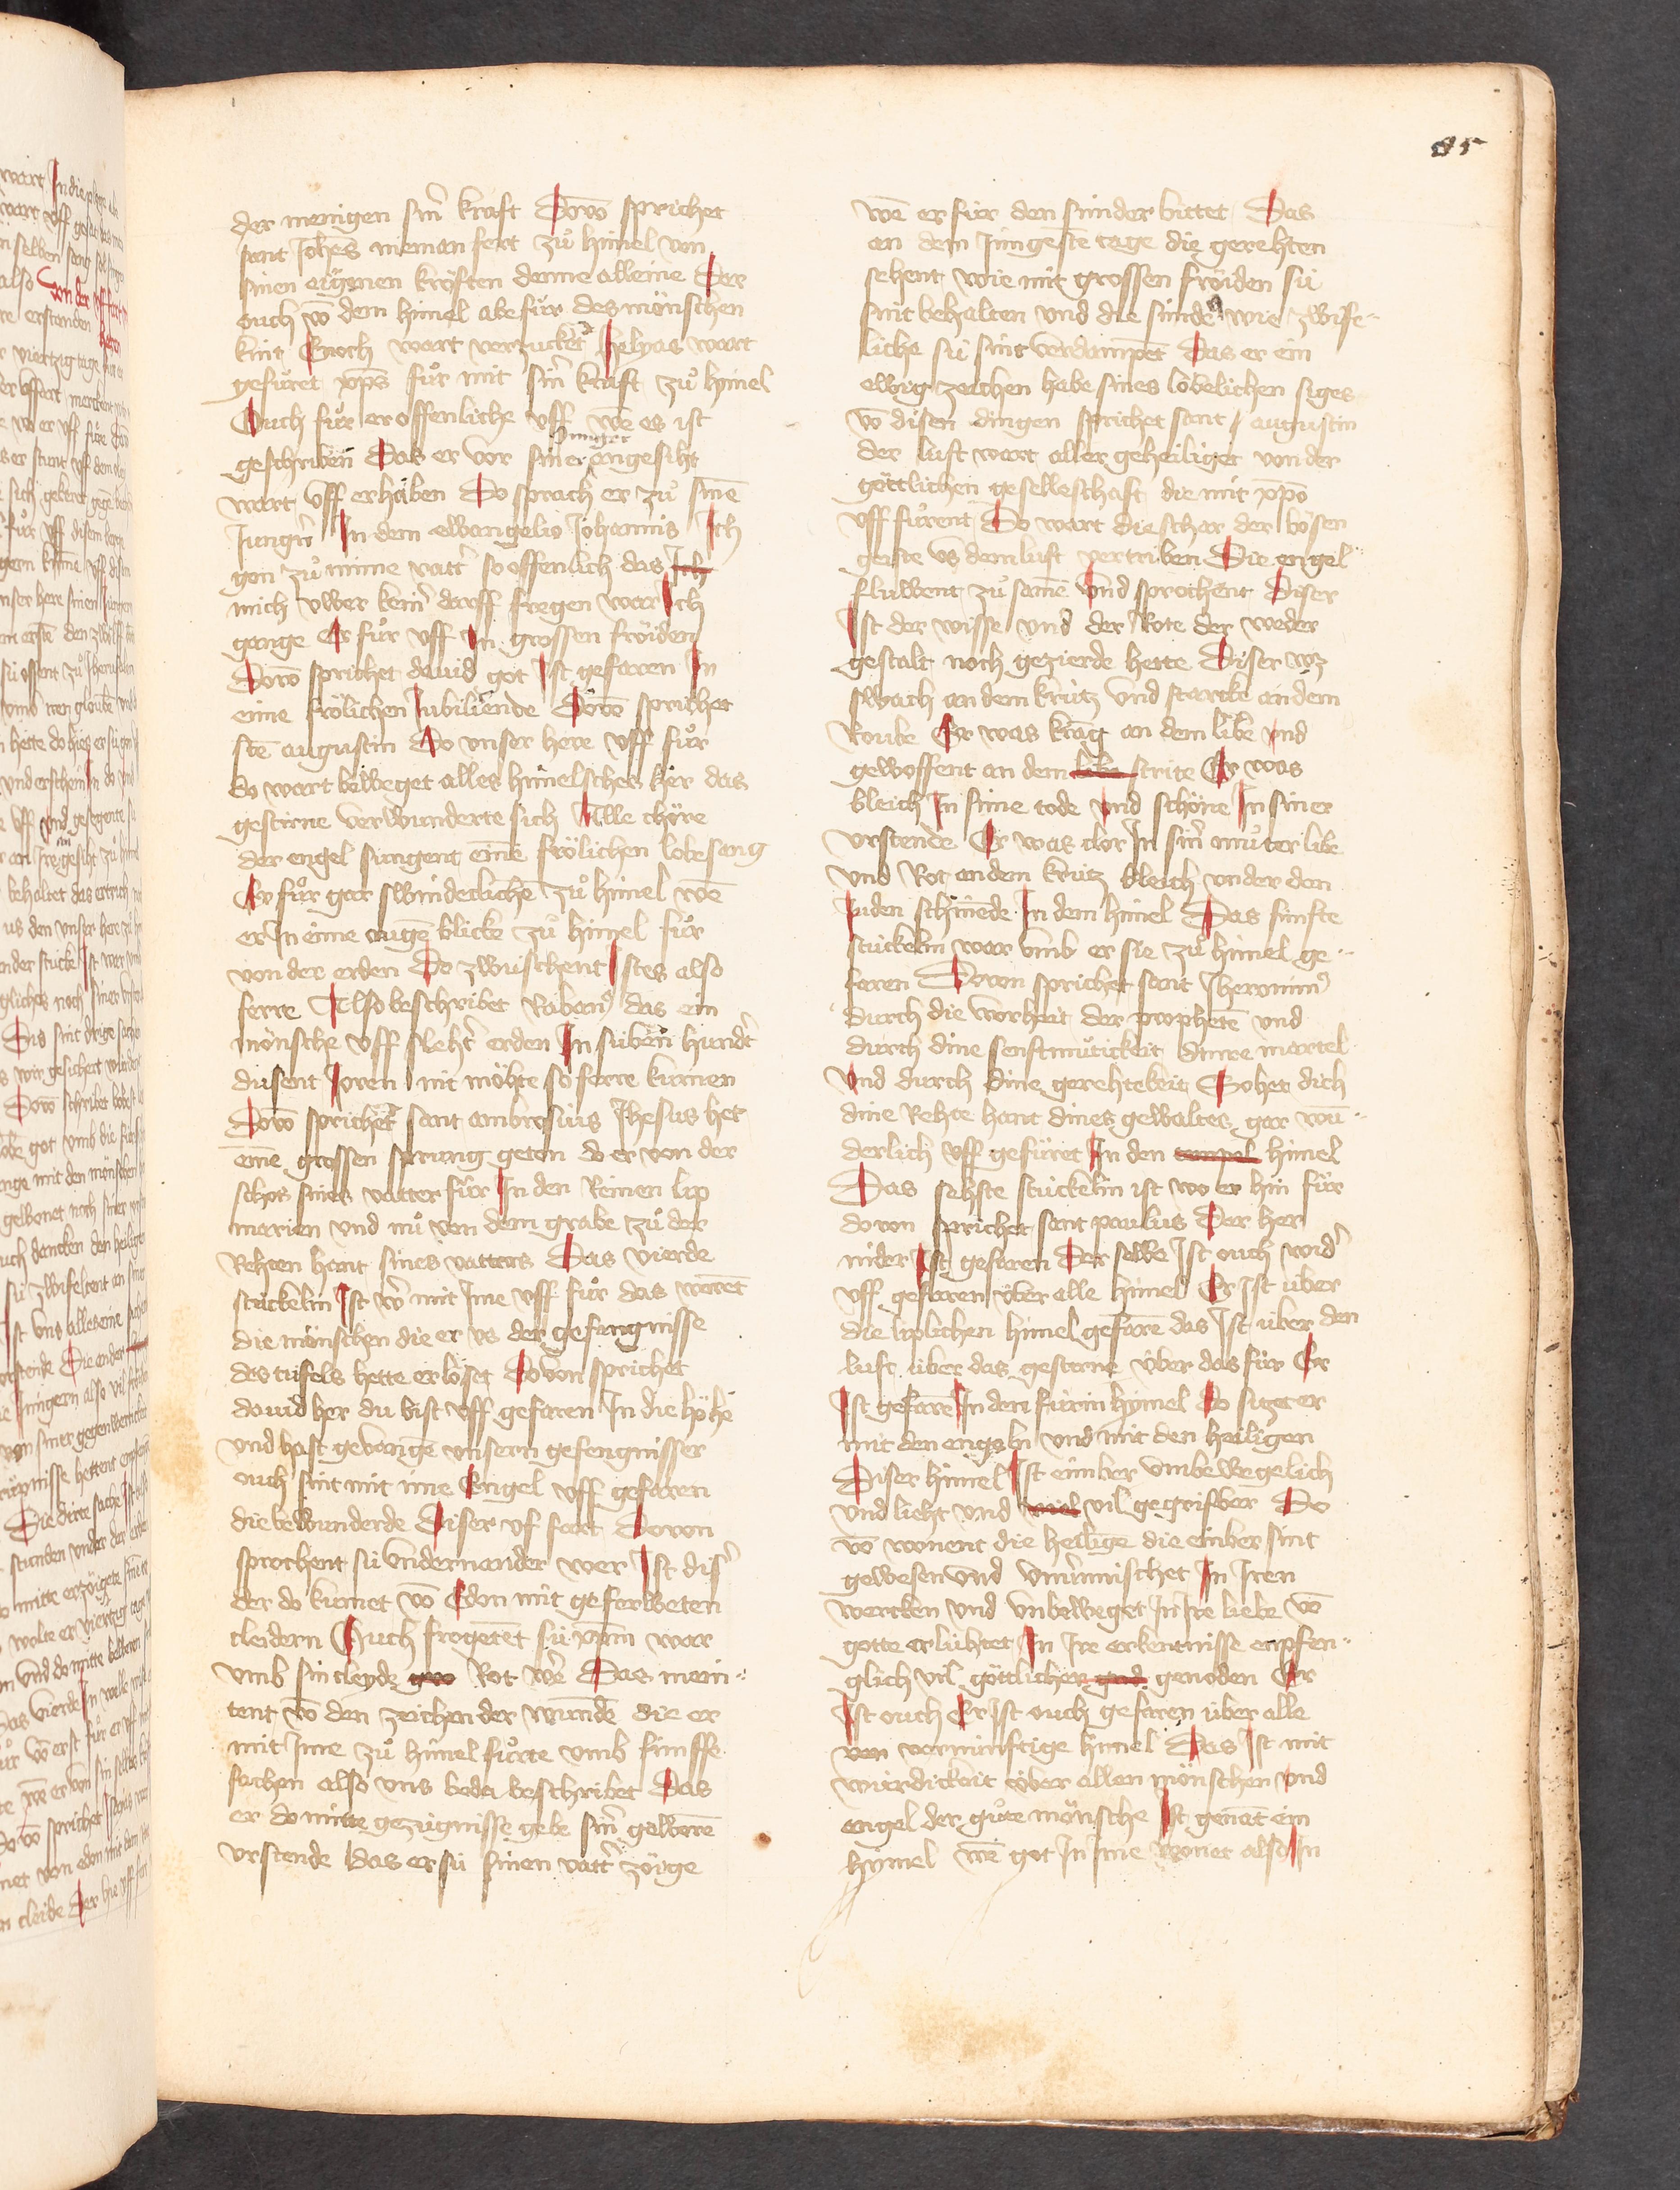 85
der menigen sinr̄ kraft Dovō sprichet
sant Johēs nieman fert zů himel von
sinen eÿgenen kröften denne alleine Der
ouch vō dem himel abe fůr des mönschen
kint Enoch wart verzucket Helyas wart
gefůret xp̄s fůr mit sinr̄ kraft zů hymel
Ouch fůr er offenliche vff wē es ist
geschriben Das er vor siner Junger angesiht
wart vff erhaben Do sprach er zů sinē
Jungrn̄ In dem ewangelio Johannis Ich
gon zů mime vattr̄ so offenlich das Ich
mich vwer keinr̄ darff fregen war Ich
gange Er fůr vff In grossen fröiden
Dovō sprichet dauid got Ist gefaren In
eime frölichen Jubiliende Dovō sprichet
stē augustin Do vnser here vff fůr
do wart beweget alles himelsches her das
gestirne verwunderte sich Alle chöre
der engel sungent einē frölichen lobesang
Er fůr gar swindecliche zů himel wē
er In eime augē blicke zů himel fůr
von der erden Do zwuschent Ist es also
ferre Also beschribet Rabanꝰ das ein
mönsche vff slehtr̄ erden In siiben hundrt̄
dusent Joren nit möhte so ferre kumen
Dovō sprichet sant ambrosius Jhesus het
einē grossen sprung geton do er von der
schos sines vatter fůr In den Reinen lip
marien vnd nů von dem grabe zů der
Rehten hant sines vatters Das vierde
stückelin Ist wr̄ mit Ime vff fůr das worēt
die mönschen die er vs der gefangnisse
des tüfels hette erlöset Do von sprichet
dauid her du bist vff gefaren In die höhe
vnd hast gevangē vnsern gefengnisser
ouch sint mit ime Engel vff gefaren
die bewunderde Diser vf fart Dovon
sprochent sü vndernander wer Ist disr̄
der do kumet vō Edon mit geferweten
cleidern Ouch frogetēt sü xp̄m war
vmb sin cleyde Rot wr̄e Das mein
tent vō den zeichen der wundē die er
mit Ime zů himel fůrte vmb fünffe
sachen also vns beda beschribet Das
er do mitte gezügnisse gebe sinr̄ geworē
vrstende das er sü sinen vattr̄ zöige
wē er für den sünder bittet Das
an dem Jüngestē tage die gerehten
sehent wie mit grossen fröiden sü
sint behalten vnd die sünder wie zwife
liche sü sint verdampet Das er ein
ewig zeichen habe sines lobelichen siges
vō disen dingen sprichet sant augustin
der luft wart aller geheiliget von der
göttlichen geselleschaft die mit xp̄o
vff fůrent Do wart die schar der bösen
geiste vs dem luft vertriben Die engel
fluwent zů samē vnd sprochent Diser
Ist der wisse vnd der Rote der weder
gestalt noch gezierde hette Diser wz
swach an dem krütz vnd starcke an dem
Roube Er was krāg an dem libe vnd
gewoffent an dem libe strite Er was
bleich In sime tode vnd schöne In siner
vrstende Er was clor In sinr̄ můter libe
vnd Rot an dem krütz bleich vnder den
Juden schinēde In dem himel Das fünfte
stückelin war vmb er sie zů himel ge
faren Do von sprichet sant Jheronimꝰ
durch die worheit der prophetē vnd
durch dine senftmůtickeit dinre martel
vnd durch dine gerehtekeit So het dich
dine Rehte hant dines gewaltes gar wū
derlich vff gefüret In den tempel himel
Das sehste stückelin ist wo er hin fůr
do von sprichet sant paulus Der her
nider Ist gefaren Der selbe Ist ouch widr̄
vff gefaren über alle himel Er Ist über
die liplichen himel gefarē das Ist über den
luft über das gestirne über das für Er
Ist gefarē In den fürin hymel do sitzet er
mit den engeln vnd mit den heiligen
Diser himel Ist einber vmbewegelich
vnd lieht vnd vil gegrifber Do
vō wonent die heiligē die einber sint
gewesen vnd vnuermischet In Iren
wercken vnd vnbeweget In Ire liebe vō
gotte erlühtet In Ire erkentnisse enpfen
glich vil göttlicher genoden Er
Ist ouch Er Ist ouch gefaren über alle
von vernünftige himel Das Ist mit
würdickeit über allen mönschen vnd
engel der gůte mönsche Ist genāt ein
hymel wē got In Ime wonet also In